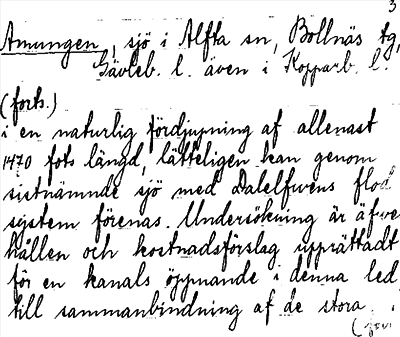 3
Amungen, sjö i Alfta sn, Bollnäs tg,
Gävleb. l. även i Kopparb. l.
(forts.)
i en naturlig fördjupning af allenast
1470 fots längd, lätteligen kan genom
sistnämnde sjö med Dalelfwens flod
system förenas. Undersökning är äfwe
hållen och kostnadsförslag upprättadt
för en kanals öppnande i denna led
till sammanbindning af de stora